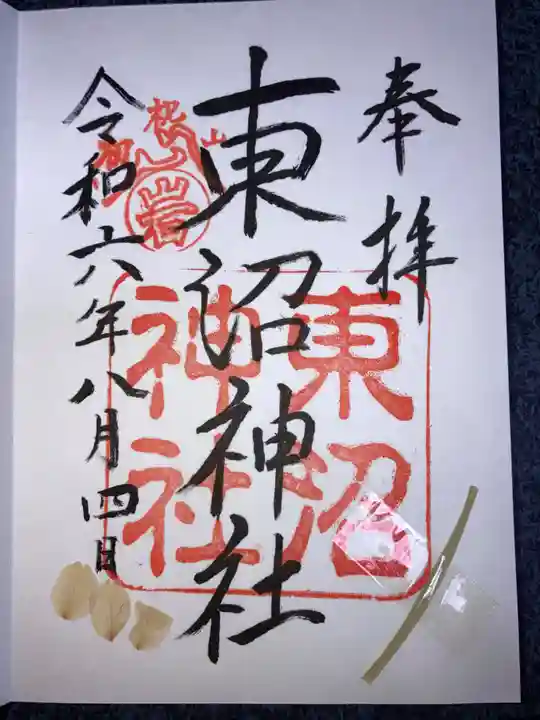 奉拝
東沼神社
令和六年八月四日
東沼
神社
岩